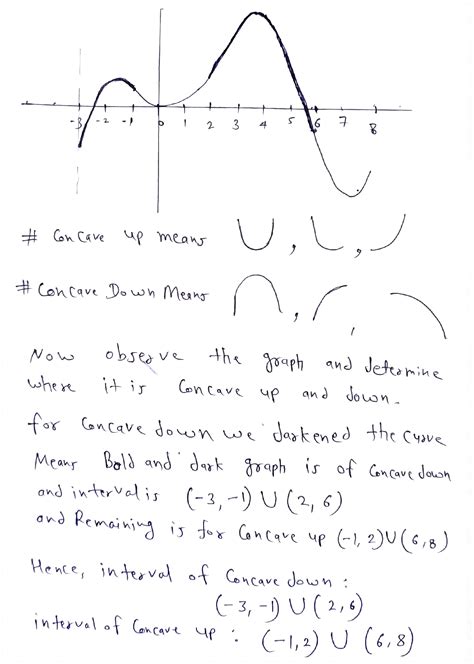 -3 -2 -1 0 1 2 3 4 5 6 7 8
# Concave up means ∪ , ,
# Concave Down Means ∩ , ,
Now observe the graph and determine
where it is Concave up and down.
for Concave down we darkened the curve
Means Bold and dark graph is of Concave down
and interval is (-3, -1) ∪ (2, 6)
and Remaining is for Concave up (-1, 2) ∪ (6, 8)
Hence, interval of Concave down :
(-3, -1) ∪ (2, 6)
interval of Concave up : (-1, 2) ∪ (6, 8)